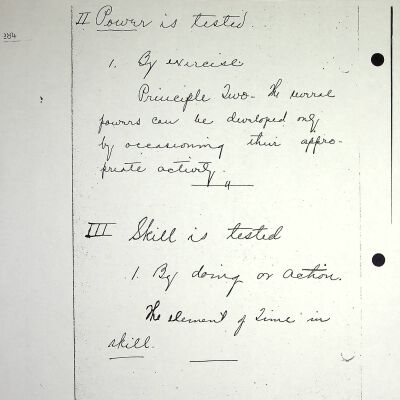 II Power is tested.
1. By exercise
Principle Two - The several
powers can be developed only
by occasioning their appro-
priate activity.
III Skill is tested
1. By doing or action.
The element of Time in
skill.